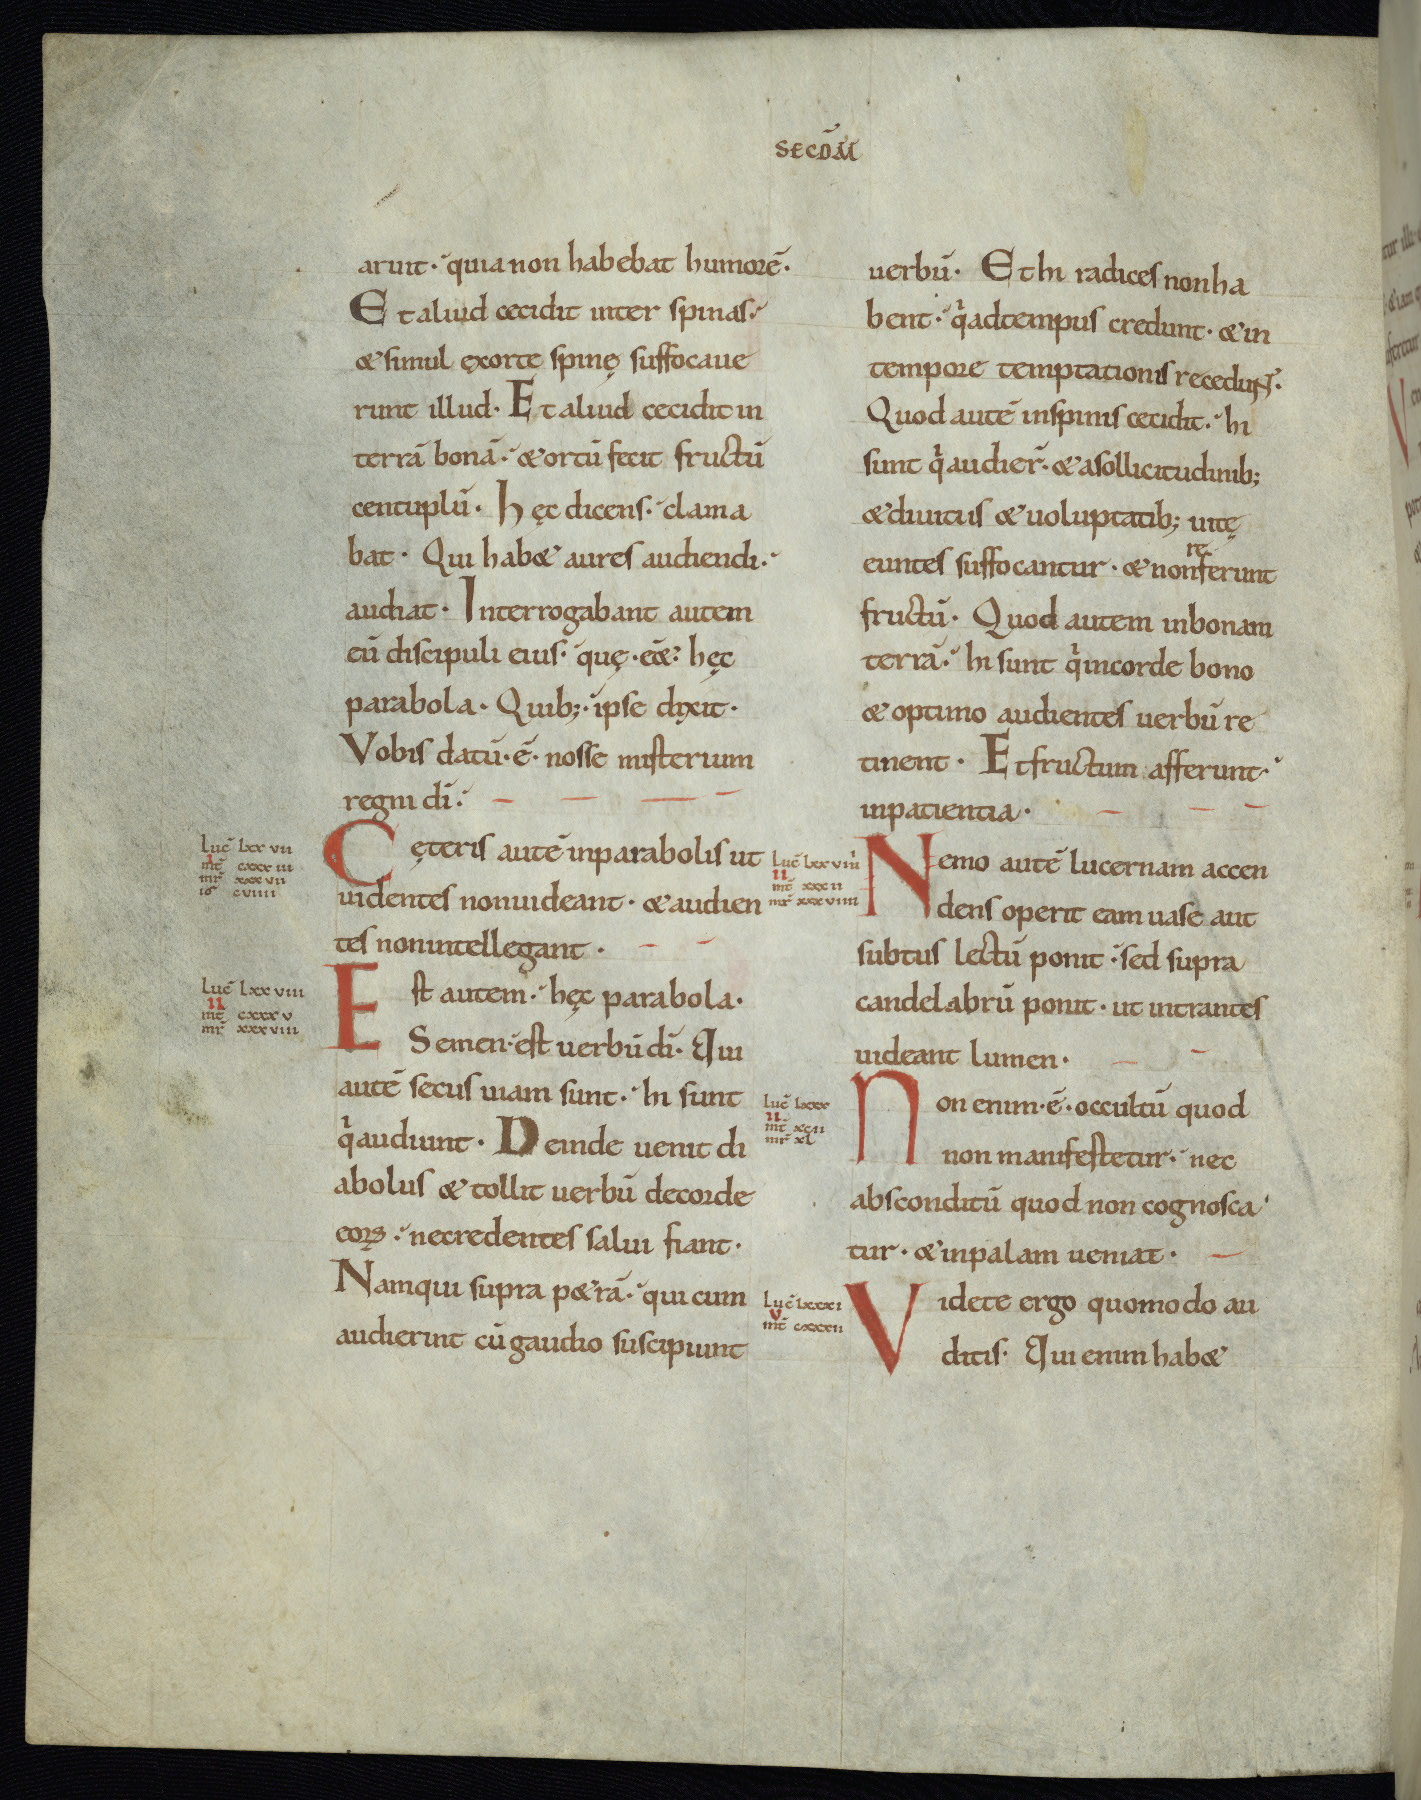 SECD̄M
aruit· quia non habebat humorē·
Et aliud cecidit inter spinas·
& simul exorte spinę suffocaue
runt illud· Et aliud cecidit in
terrā bonā· & ortū fecit fructū
centuplū· hęc dicens· clama
bat· Qui hab& aures audiendi·
audiat· Interrogabant autem
eū discipuli eius· quę· eē&· hęc
parabola· Quib;· ipse dixit·
Vobis datū· ē· nosse misterium
regni dī·
Cęteris autē in parabolis ut
uidentes non uideant· & audien
tes non intellegant·
Est autem· hęc parabola·
Semen· est uerbū dī· Qui
autē secus uiam sunt· hi sunt
qͥ audiunt· Deinde uenit di
abolus & tollit uerbū de corde
eoꝝ· ne credentes salui fiant·
Nam qui supra p&rā· qui cum
audierint cū gaudio suscipiunt
Luc̄ lxxvii
i
mt̄ cxxxiii
mr̄ xxxvii
io cviiii
Luc̄ lxxviii
ii
mt̄ cxxxv
mr̄ xxxviii
uerbū· Et hi radices non ha
bent· qͥ ad tempus credunt· & in
tempore temptationis recedunt·
Quod autē in spinis cecidit· hi
sunt qͥ audier̄· & a sollicitudinib;
& diuitiis & uoluptatib; uitę
euntes suffocantur· & non referunt
fructū· Quod autem in bonam
terrā· hi sunt qͥ in corde bono
& optimo audientes uerbū re
tinent· Et fructum afferunt·
in patientia·
Nemo autē lucernam accen
dens operit eam uase aut
subtus lectū ponit· sed supra
candelabrū ponit· ut intrantes
uideant lumen·
Non enim· ē· occultū quod
non manifestetur· nec
absconditū quod non cognosca
tur· & in palam ueniat·
Videte ergo quomodo au
ditis· Qui enim hab&
Luc̄ lxxviiii
ii
mt̄ xxxii
mr̄ xxxviiii
Luc̄ lxxx
ii
mt̄ xcii
mr̄ xl
Luc̄ lxxxi
v
mt̄ cxxxii